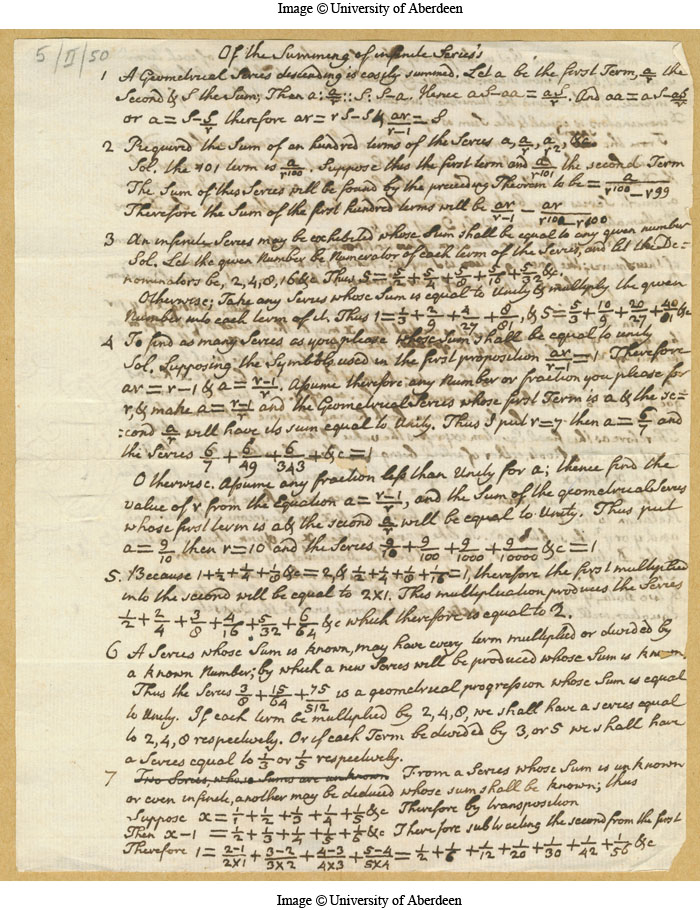 Image © University of Aberdeen
5/II/50
Of the Summing of infinite Series's
1 A Geometrical Series descending is easily summed. Let a be the first Term, a/r the
Second & S the Sum; Then a : a/r :: S : S-a. Hence aS-aa = aS/r. And aa = aS-aS/r
or a = S-S/r therefore ar = rS-S & ar/r-1 = S
2 Required the Sum of an hundred terms of the Series a, a/r, a/r2, &c
Sol. the 101 term is a/r100. Suppose this the first term and a/r101 the second Term
The Sum of this Series will be found by the preceeding Theorem to be = a/r100-r99
Therefore the Sum of the first hundred terms will be ar/r-1 - ar/r100-r100
3 An infinite Series may be exhibited whose Sum shall be equal to any given number
Sol. Let the given Number be Numerator of each term of the Series, and let the De=
nominators be, 2, 4, 8, 16 &c Thus 5 = 5/2 + 5/4 + 5/8 + 5/16 + 5/32 &c.
Otherwise; Take any Series whose Sum is equal to Unity & multiply the given
Number into each term of it. Thus 1 = 1/3 + 2/9 + 4/27 + 8/81, & 5 = 5/3 + 10/9 + 20/27 + 40/81 &c
4 To find as many Series as you please whose Sum shall be equal to unity
Sol. Supposing the Symbols used in the first proposition ar/r-1 = 1 Therefore
ar = r-1 & a = r-1/r. Assume therefore any Number or fraction you please for
r, & make a = r-1/r and the Geometrical Series whose first Term is a & the se=
:cond a/r will have its sum equal to Unity. Thus I put r=7 then a = 6/7 and
the Series 6/7 + 6/49 + 6/343 + &c = 1
Otherwise. Assume any fraction less than Unity for a; thence find the
value of r from the Equation a = r-1/r, and the Sum of the geometrical Series
whose first term is a & the second a/r will be equal to Unity. Thus put
a = 9/10 then r=10 and the Series 9/10 + 9/100 + 9/1000 + 9/10000 &c = 1
5. Because 1 + 1/2 + 1/4 + 1/8 &c = 2, & 1/2 + 1/4 + 1/8 + 1/16 = 1, therefore the first multiplied
into the second will be equal to 2x1. This multiplication produces the Series
1/2 + 2/4 + 3/8 + 4/16 + 5/32 + 6/64 &c which therefore is equal to 2.
6 A Series whose Sum is known, may have every term multiplied or divided by
a known Number; by which a new Series will be produced whose Sum is known
Thus the Series 3/8 + 15/64 + 75/512 is a geometrical progression whose Sum is equal
to Unity. If each term be multiplied by 2, 4, 8, we shall have a series equal
to 2, 4, 8 respectively. Or if each Term be divided by 3, or 5 we shall have
a Series equal to 1/3 or 1/5 respectively.
7 Two Series, whose Sums are unknown From a Series whose Sum is unknown
or even infinite, another may be deduced whose sum shall be known; thus
Suppose x = 1/1 + 1/2 + 1/3 + 1/4 + 1/5 &c Therefore by transposition
Then x-1 = 1/2 + 1/3 + 1/4 + 1/5 + 1/6 &c Therefore subtracting the second from the first
Therefore 1 = 2-1/2x1 + 3-2/3x2 + 4-3/4x3 + 5-4/5x4 = 1/2 + 1/6 + 1/12 + 1/20 + 1/30 + 1/42 + 1/56 &c
Image © University of Aberdeen